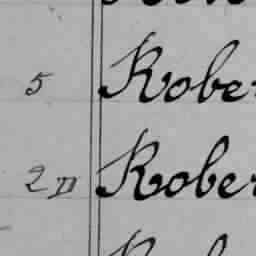 5 Rober
2 D Rober